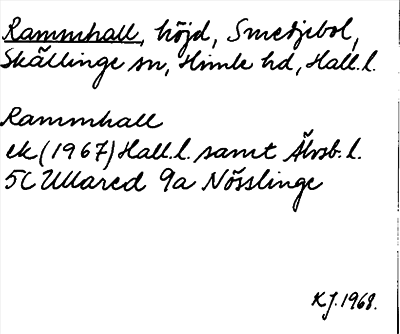 Rammhall, höjd, Smedjebol,
Skällinge sn, Himle hd, Hall.l.
Rammhall
ek (1967) Hall.l. samt Älvsb.l.
5C Ullared 9a Nösslinge
KJ. 1968.